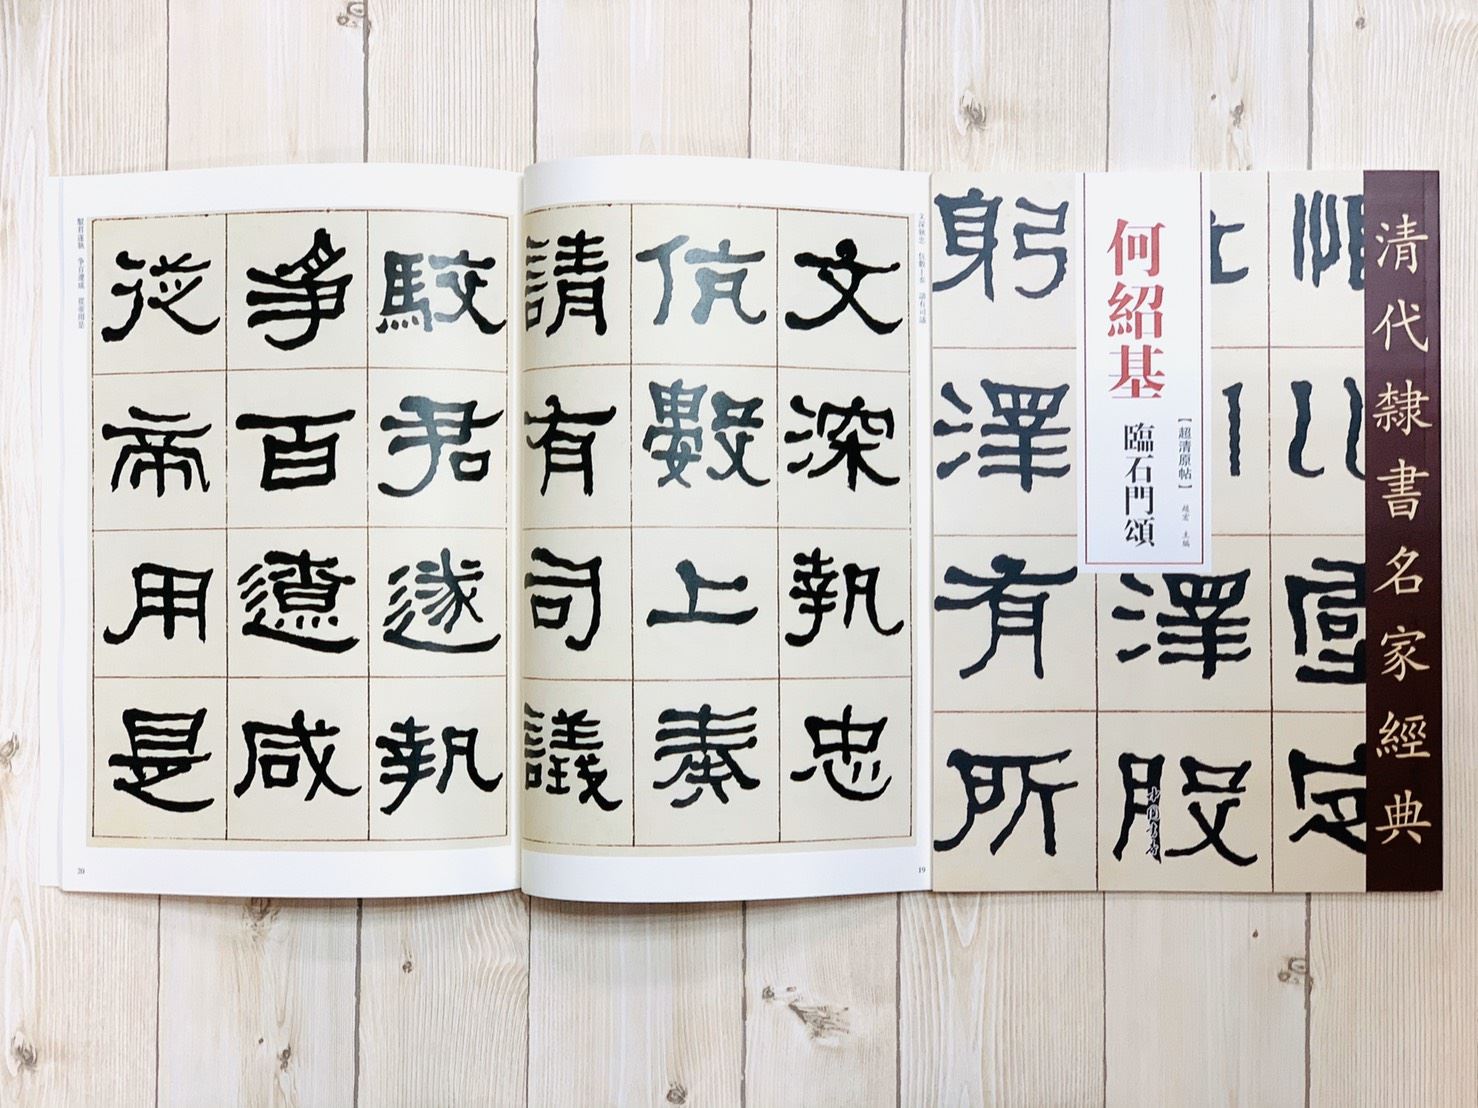 清代隸書名家經典
何紹基
臨石門頌
【超清原帖】
趙宏 主編
躬澤有所
澤股
文深執忠 伉數上奏 請有司議
文深執忠
伉數上奏
請有司議
19
駮君遂執 爭百遼咸 從帝用是
駮君遂執
爭百遼咸
從帝用是
20